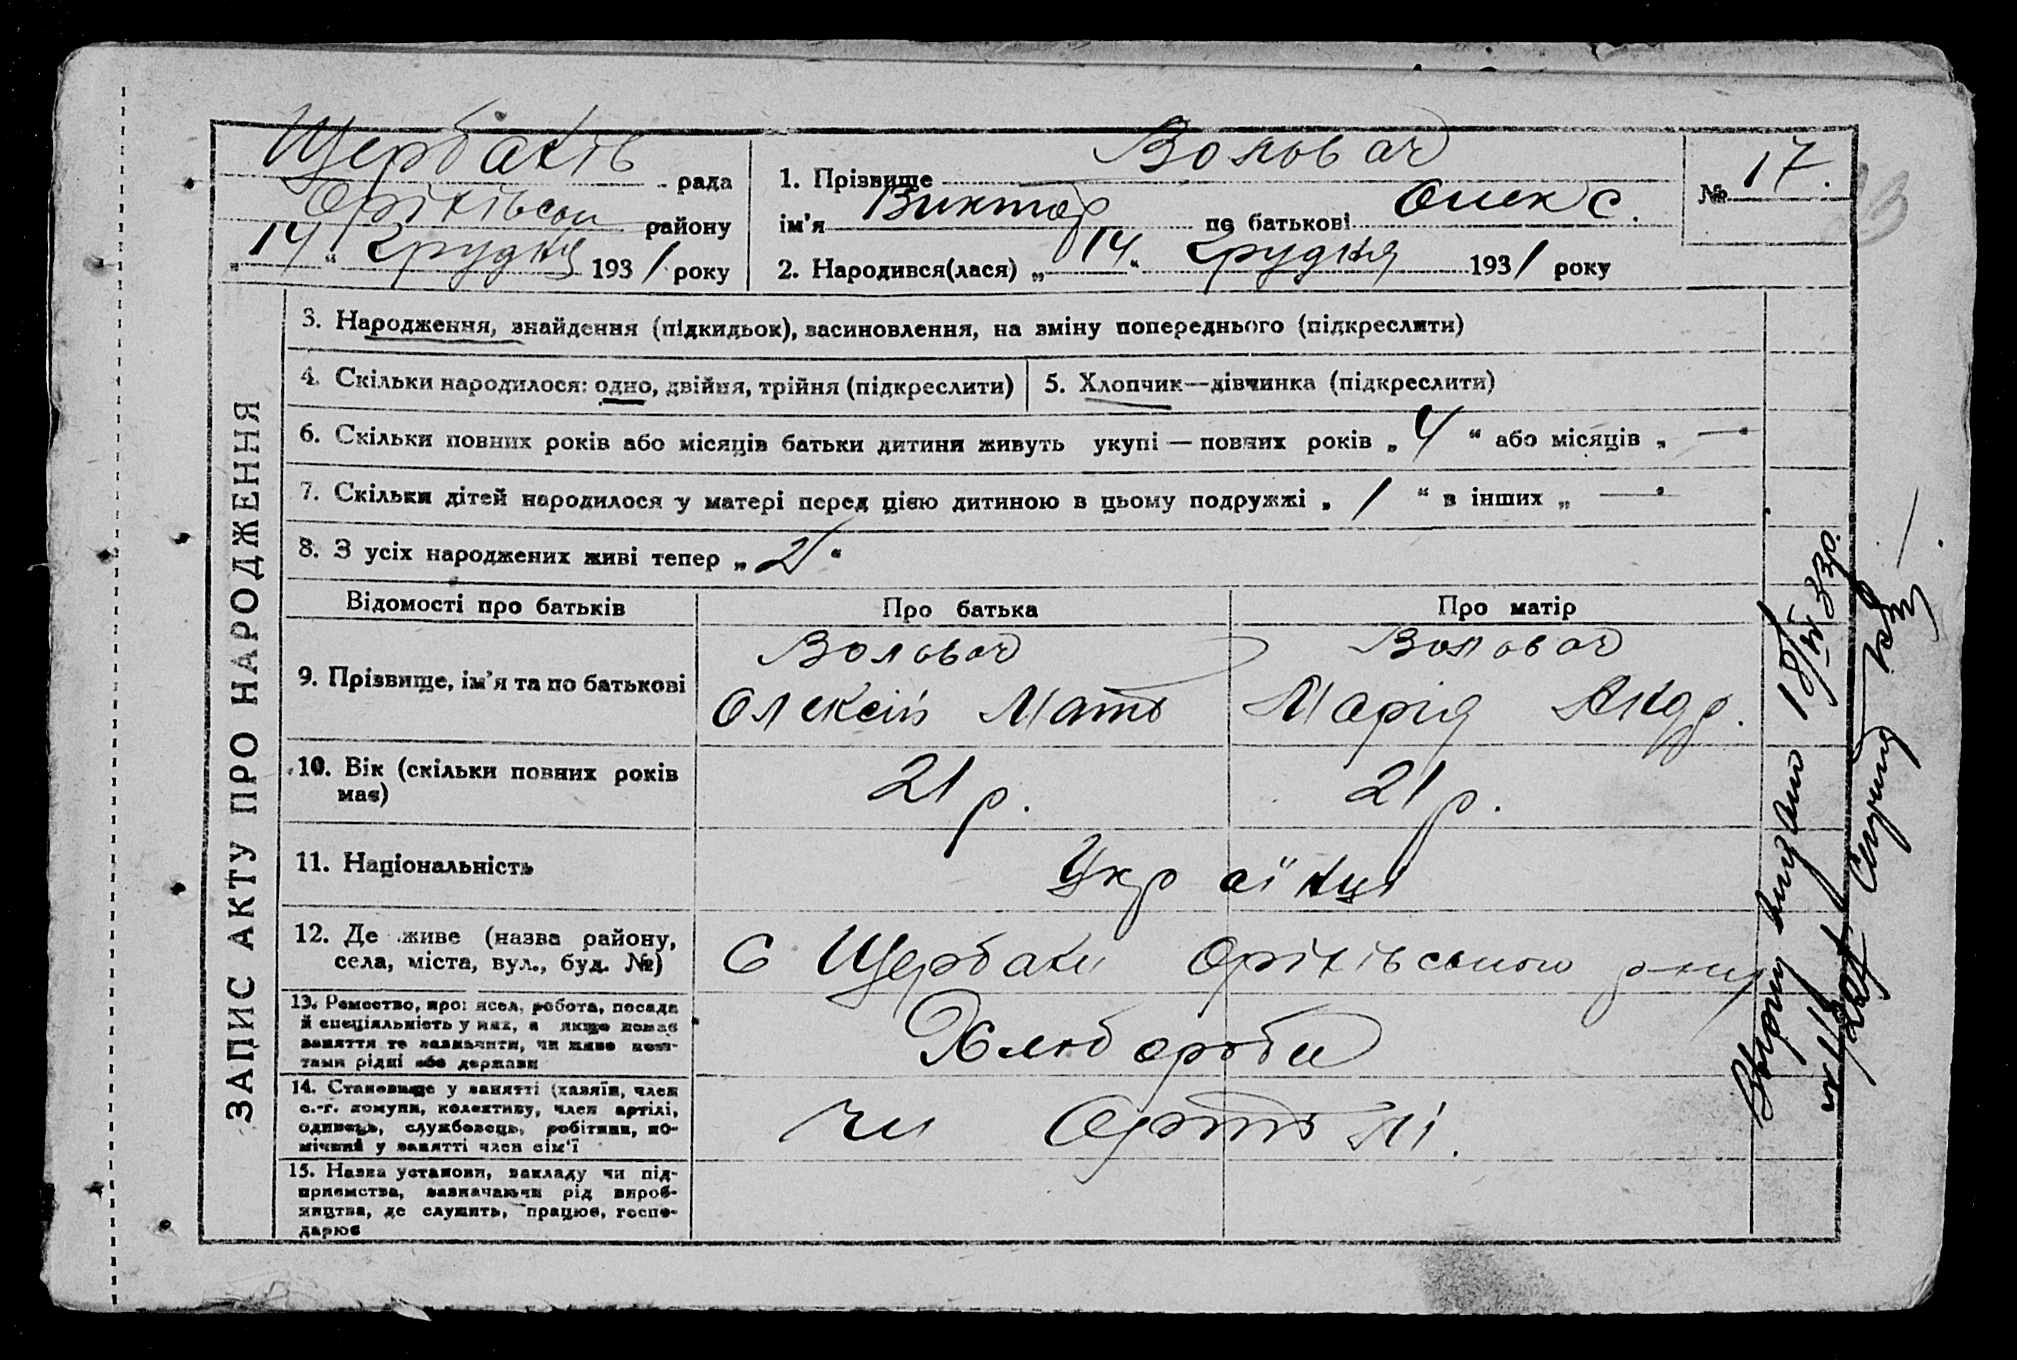 Щербаків рада
Оріхівськ району
„14“ грудня 1931 року
1. Прізвище Воловач
ім’я Виктор по батькові Олекс.
2. Народився(лася) „14“ грудня 1931 року
№ 17.
ЗАПИС АКТУ ПРО НАРОДЖЕННЯ
3. Народження, знайдення (підкидьок), засиновлення, на зміну попереднього (підкреслити)
4. Скільки народилося: одно, двійня, трійня (підкреслити)
5. Хлопчик—дівчинка (підкреслити)
6. Скільки повних років або місяців батьки дитини живуть укупі — повних років „4“ або місяців „—“
7. Скільки дітей народилося у матері перед цією дитиною в цьому подружжі „1“ в інших „—“
8. З усіх народжених живі тепер „2“
Відомості про батьків
Про батька
Про матір
9. Прізвище, ім’я та по батькові
Воловач
Олексій Матв
Воловач
Марія Андр.
10. Вік (скільки повних років
має)
21 р.
21 р.
11. Національність
Українці
12. Де живе (назва району,
села, міста, вул., буд. №)
С Щербаки Оріхівського р-ну
13. Ремество, професія, робота, посада
й спеціяльність у них, а якщо немає
заняття то зазначити, чи живе кош-
тами рідні або держави
Хлібороби
14. Становище у занятті (хазяїн, член
с.-г. комуни, колективу, член артілі,
одинець, службовець, робітник, по-
мічний у занятті член сім’ї
чл Артілі.
15. Назва установи, закладу чи під-
приємства, зазначаючи рід вироб-
ництва, де служить, працює, госпо-
дарює
видано 18/IV 33р.